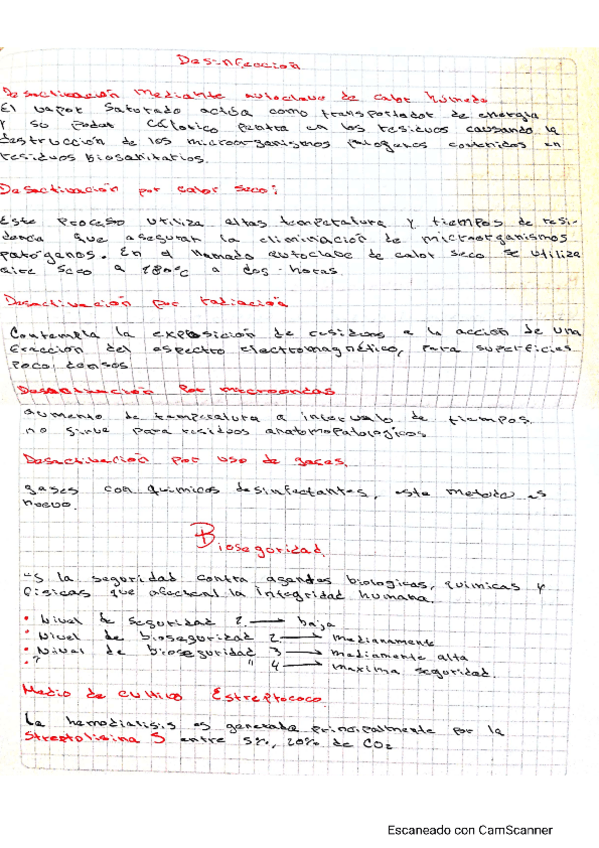 Desinfección
Desactivación mediante autoclave de calor húmedo
El vapor saturado actúa como transportador de energía
y su poder calorico penetra en los residuos causando la
destrucción de los microorganismos patogenos contenidos en
residuos Biosanitarios.
Desactivación por calor seco:
Este proceso utiliza altas temperatura y tiempos de resi-
dencia que asegurar la eliminación de microorganismos
patógenos. En el llamado autoclave de calor seco se utiliza
aire seco a 180°C a dos-horas.
Desactivación por radiación
Contempla la exposición de residuos a la acción de una
fracción del espectro electromagnético, para superficies
poco densos
Desactivación por microondas
aumento de temperatura a intervalo de tiempos.
no sirve para residuos anatomopatologicos
Desactivación por uso de gases.
gases con quimicos desinfectantes, este metodo es
nuevo.
Bioseguridad.
Es la seguridad contra agentes biologicas, químicas y
físicas que afecten la integridad humana.
• Nivel de seguridad → baja
• Nivel de bioseguridad 2 → medianamente
• Nivel de bioseguridad 3 → mediamente alta
" 4 → maxima seguridad.
Medio de cultivo Estreptococo
La hemodialisis es generada principalmente por la
Streptolisina S entre 5%, 20% de CO2
Escaneado con CamScanner